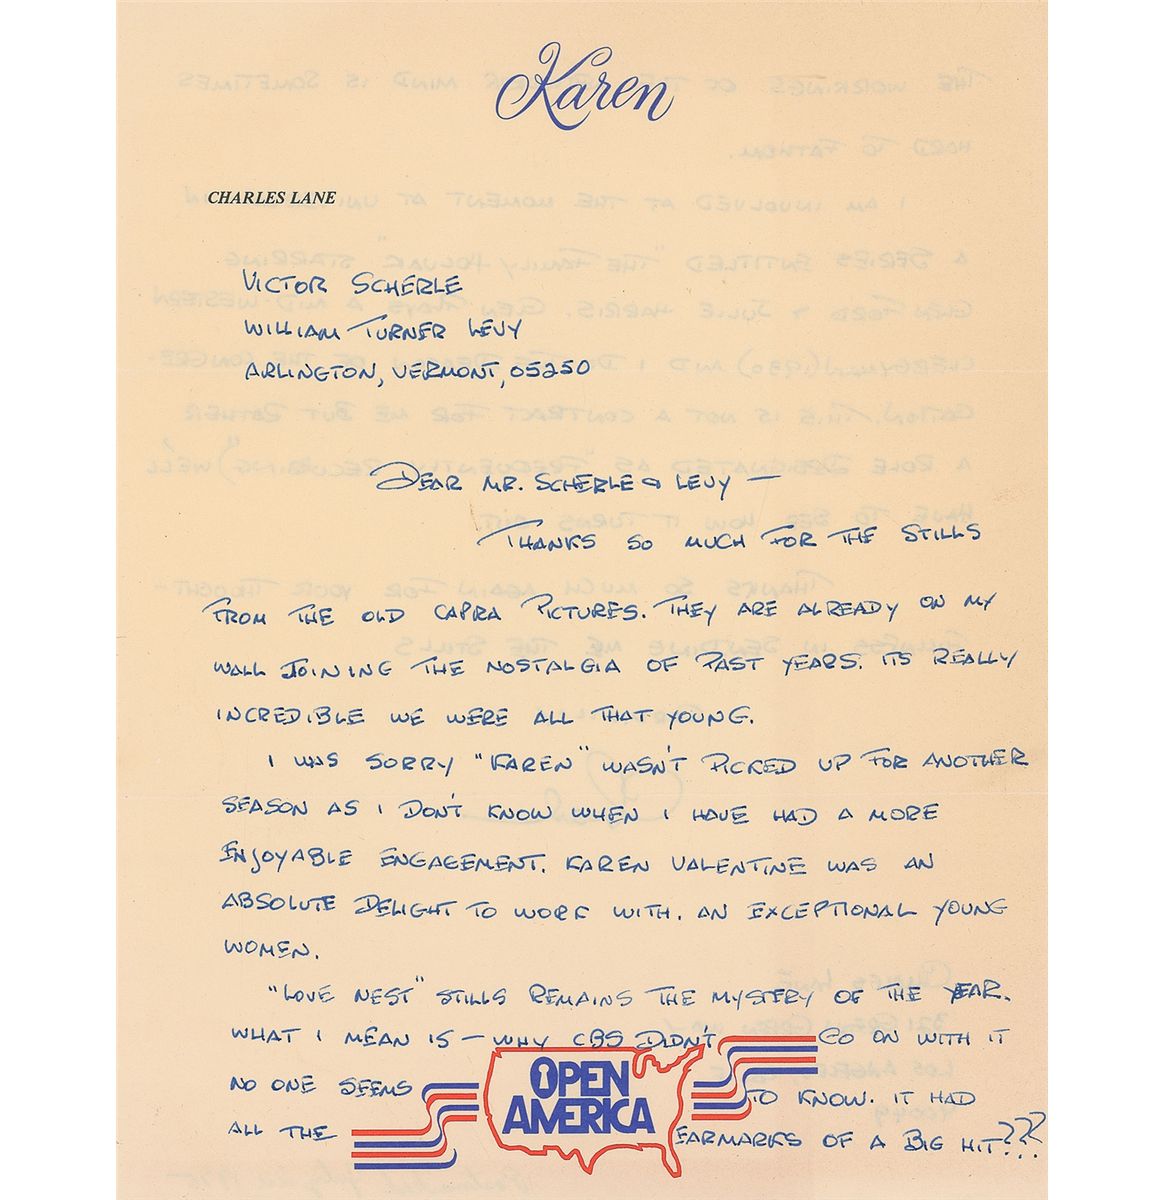 Karen
CHARLES LANE
VICTOR SCHERLE
WILLIAM TURNER LEVY
ARLINGTON, VERMONT, 05250
DEAR MR. SCHERLE & LEVY —
THANKS SO MUCH FOR THE STILLS
FROM THE OLD CAPRA PICTURES. THEY ARE ALREADY ON MY
WALL JOINING THE NOSTALGIA OF PAST YEARS. ITS REALLY
INCREDIBLE WE WERE ALL THAT YOUNG.
I WAS SORRY "KAREN" WASN'T PICKED UP FOR ANOTHER
SEASON AS I DON'T KNOW WHEN I HAVE HAD A MORE
ENJOYABLE ENGAGEMENT. KAREN VALENTINE WAS AN
ABSOLUTE DELIGHT TO WORK WITH. AN EXCEPTIONAL YOUNG
WOMEN.
"LOVE NEST" STILLS REMAINS THE MYSTERY OF THE YEAR.
WHAT I MEAN IS — WHY CBS DIDN'T GO ON WITH IT
NO ONE SEEMS TO KNOW. IT HAD
ALL THE EARMARKS OF A BIG HIT???
OPEN
AMERICA